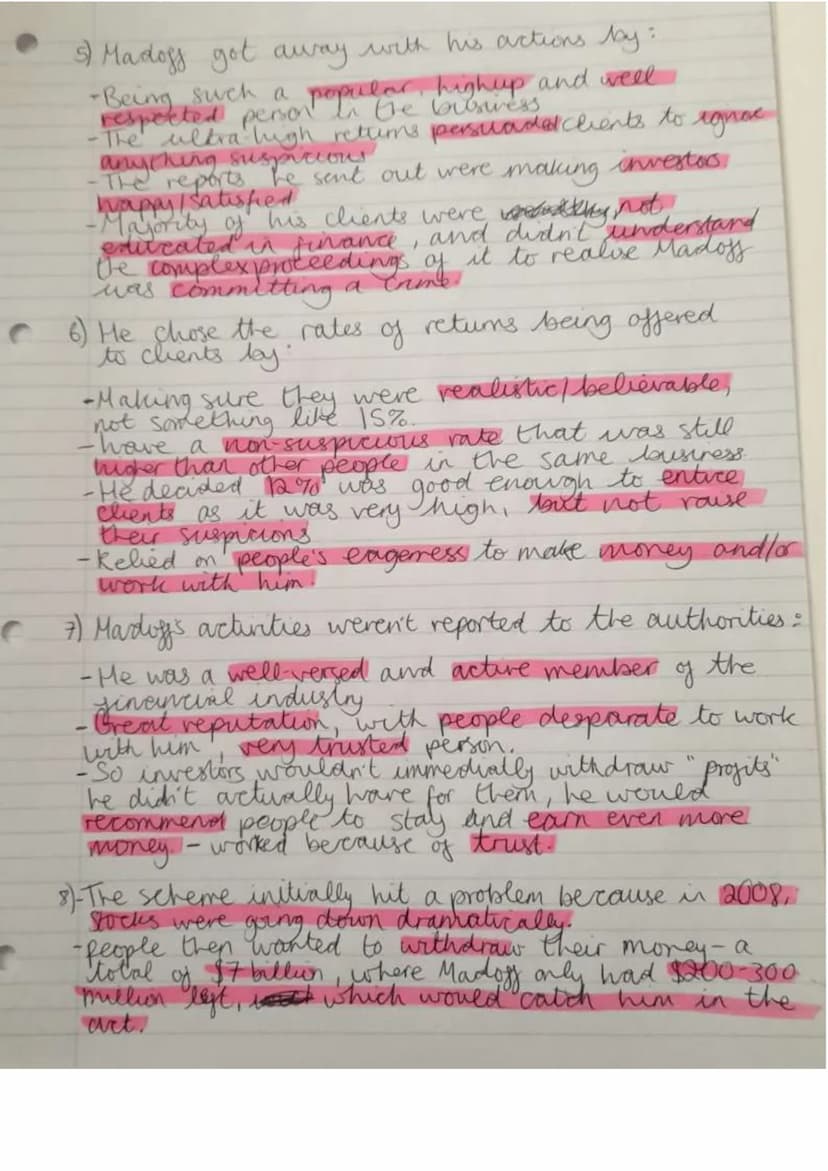 5) Madoff got away with his actions by:
-Being such a popular, highup and well
respected person in the business
-The ultra-high returns persuaded clients to ignore
anything suspicious
-The reports he sent out were making investors
happy/satisfied
-Majority of his clients were not
educated in finance, and didn't understand
the complex proceedings of it to realise Madoff
was committing a crime.
6) He chose the rates of returns being offered
to clients by:
-Making sure they were realistic/believable,
not something like 15%.
-have a non-suspicious rate that was still
higher than other people in the same business
-He decided 12% was good enough to entice
clients as it was very high, but not raise
their suspicions
-Relied on people's eagerness to make money and/or
work with him.
7) Madoff's activities weren't reported to the authorities:
-He was a well-versed and active member of the
financial industry
-Great reputation, with people desparate to work
with him, very trusted person.
-So investors wouldn't immedially withdraw "profits"
he didn't actually have for them, he would
recommend people to stay and earn even more
money - worked because of trust.
8)-The scheme initially hit a problem because in 2008,
stocks were going down dramatically.
-people then wanted to withdraw their money - a
total of $7 billion, where Madoff only had $200-300
million left, which would catch him in the
act.